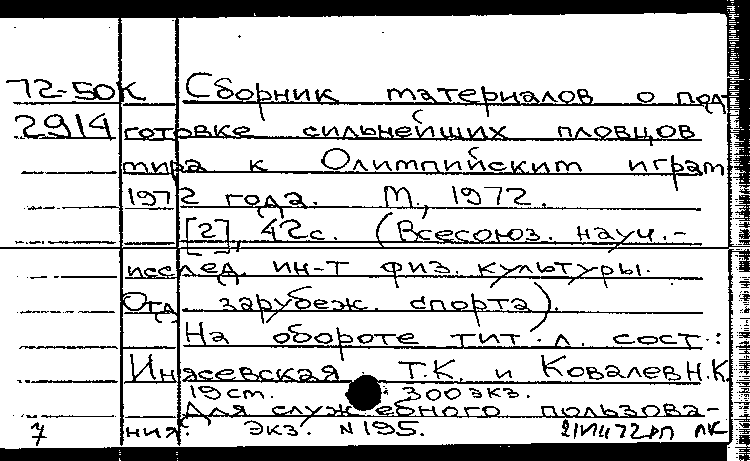 72-50К Сборник материалов о под-
2914 готовке сильнейших пловцов
мира к Олимпийским играм
1972 года. М., 1972.
[2], 42с. (Всесоюз. науч.-
исслед. ин-т физ. культуры.
Отд. зарубеж. спорта).
На обороте тит. л. сост.:
Инясевская Т.К. и Ковалев Н.К.
19 cm. 300 экз.
Для служебного пользова-
7 ния. Экз. N 195.